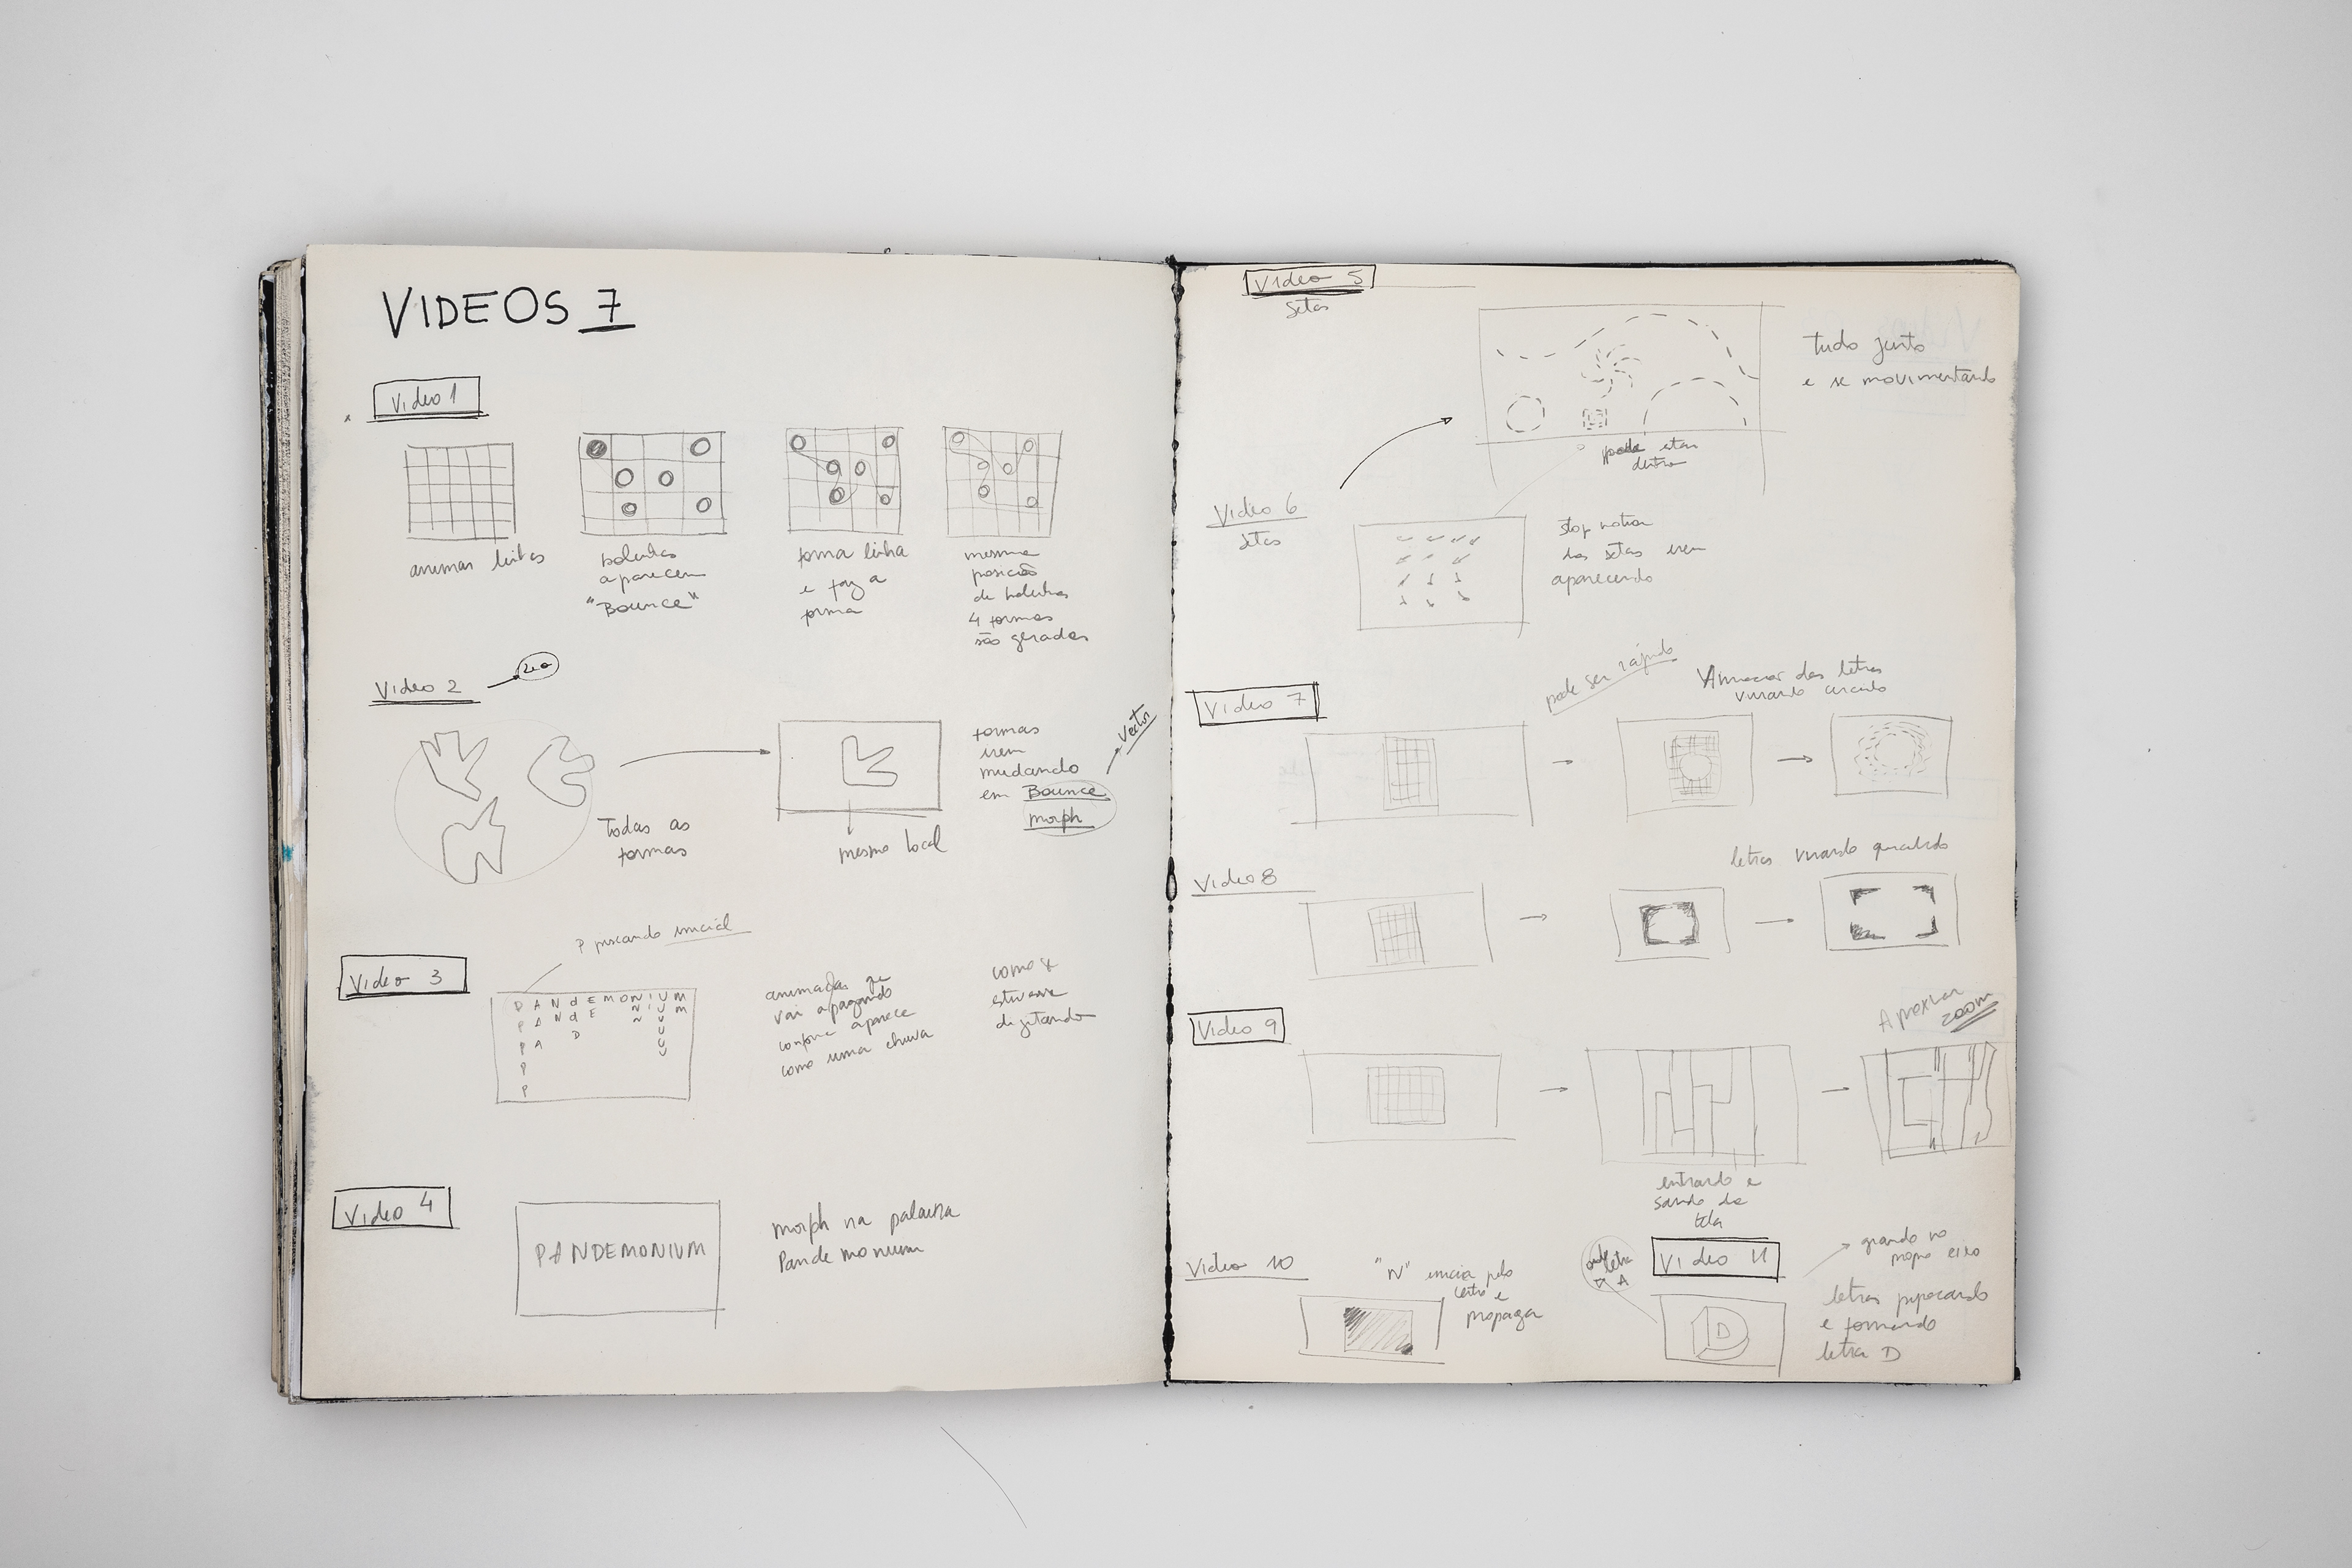 VIDEOS 7
Video 1
animar linhas
bolinhas
aparecem
"Bounce"
forma linha
e faz a
forma
mesma
posição
de bolinhas
4 formas
são geradas
Video 2
Todas as
formas
mesmo local
formas
irem
mudando
em Bounce
morph
Vector
Video 3
P piscando inicial
PANdEMONIUM
PANdE NIUM
animadas
vai apagando
conforme aparece
como uma chuva
como
estivesse
digitando
Video 4
PANDEMONIUM
morph na palavra
Pandemonium
Video 5
Setas
tudo junto
e se movimentando
pode estar
dentro
Video 6
setas
stop motion
das setas irem
aparecendo
Video 7
pode ser rápido
das letras
virando circulo
Video 8
letras virando quadrado
Video 9
Aproximar
zoom
entrando e
saindo da
tela
Video 10
"N" inicia pelo
centro e
propaga
Video 11
girando no
proprio eixo
letra
A
D
letras pipocando
e formando
letra D